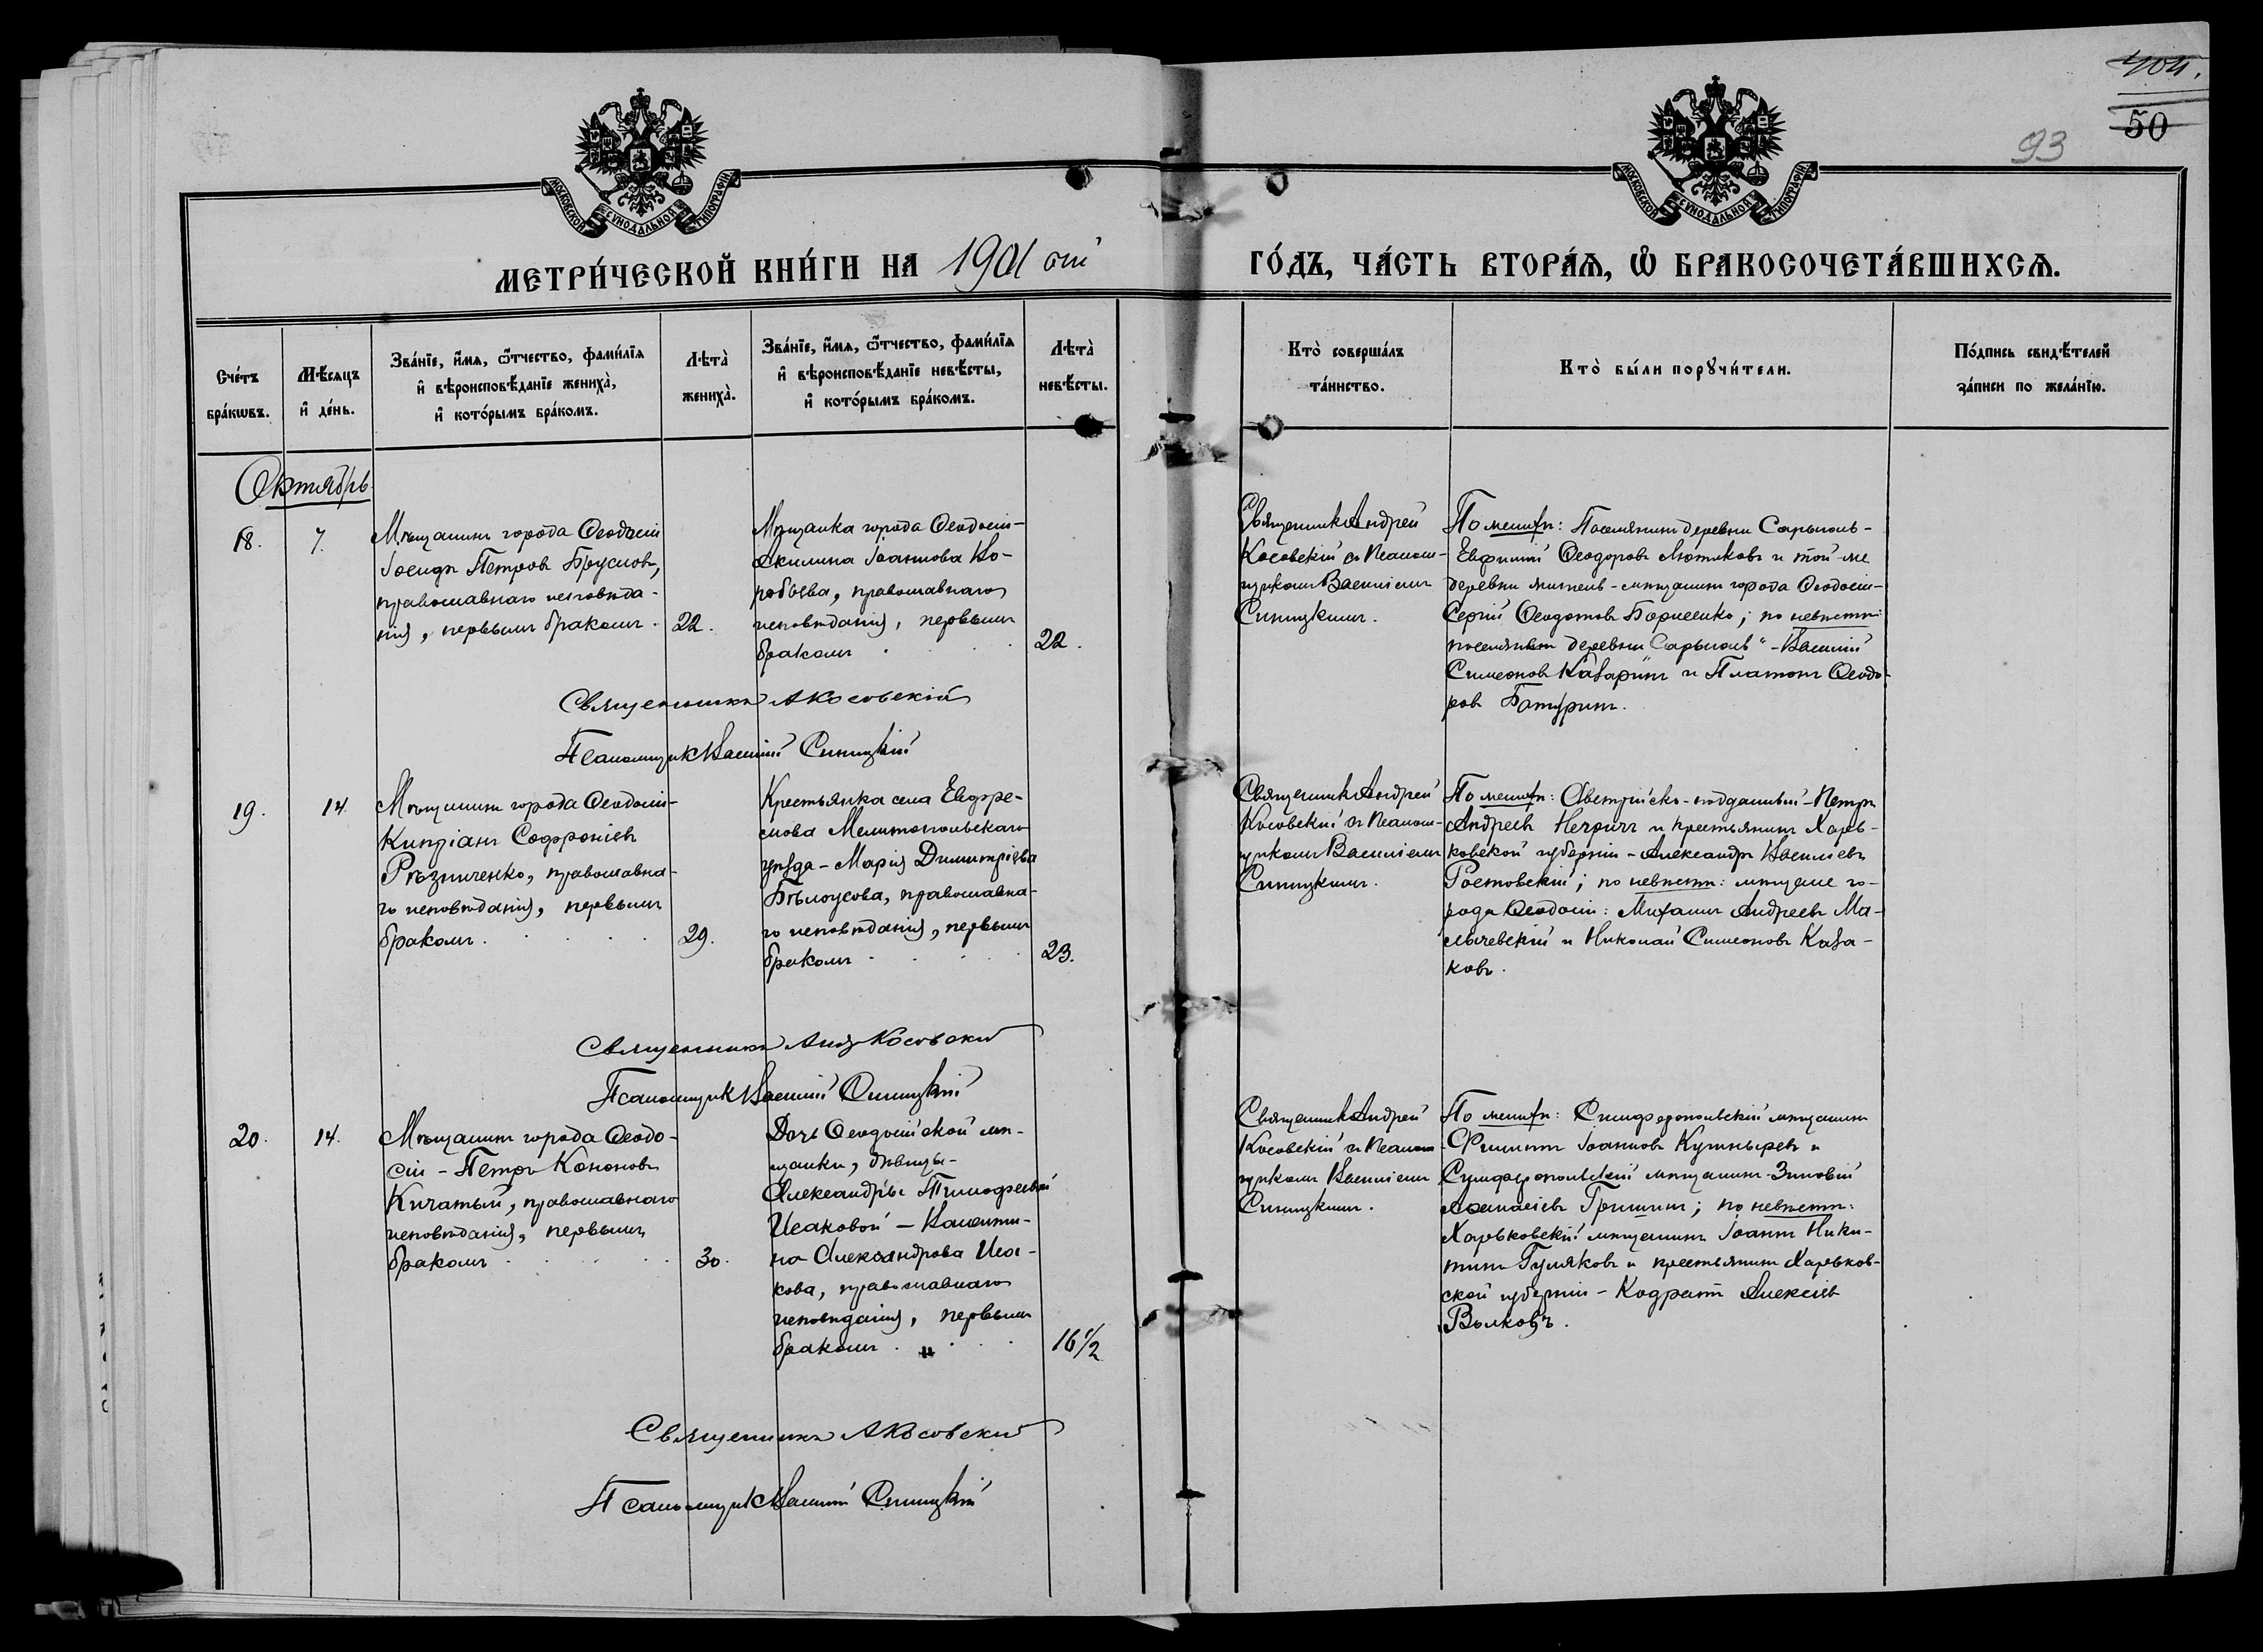 404.
50
93
МОСКОВСКОЙ СѴНОДАЛЬНОЙ ТИПОГРАФІИ
МОСКОВСКОЙ СѴНОДАЛЬНОЙ ТИПОГРАФІИ
МЕТРИ́ЧЕСКОЙ КНИ́ГИ НА 1901 ый ГО́ДЪ, ЧА́СТЬ ВТОРА́Ѧ, Ѡ҆ БРАКОСОЧЕТА́ВШИХСѦ.
Сче́тъ бра́кѡвъ.
Мѣ́сѧцъ и҆ де́нь.
Зва́нїе, и҆́мѧ, ѻ҆́тчество, фами́лїѧ
и҆ вѣроисповѣ́данїе жениха̀,
и҆ кото́рымъ бра́комъ.
Лѣта̀ жениха̀.
Зва́нїе, и҆́мѧ, ѻ҆́тчество, фами́лїѧ
и҆ вѣроисповѣ́данїе невѣ́сты,
и҆ кото́рымъ бра́комъ.
Лѣта̀ невѣ́сты.
Кто̀ соверша́лъ
та́инство.
Кто̀ бы́ли порꙋчи́тели.
По́дпись свидѣ́телей
за́писи по жела́нїю.
Октябрь.
18.
7.
Мѣщанинъ города Ѳеодосіи
Іосифъ Петровъ Брусновъ,
православнаго исповѣда-
нія, первымъ бракомъ.
22.
Мѣщанка города Ѳеодосіи-
Акилина Іоаннова Во-
робьева, православнаго
исповѣданія, первымъ
бракомъ
22.
Священникъ Андрей
Косовскій съ Псалом-
щикомъ Василіемъ
Синицкимъ.
По женихѣ: Поселянинъ деревни Сарыголь-
Евфимій Ѳеодоровъ Лютиковъ и той-же
деревни житель-мѣщанинъ города Ѳеодосіи-
Сергій Ѳеодотовъ Борисенко; по невѣстѣ:
поселяне деревни Сарыголь"-Василій
Симеоновъ Кабаринъ и Платонъ Ѳеодо-
ровъ Батуринъ.
Священникъ А Косовскій
Псаломщикъ Василій Синицкій
19.
14.
Мѣщанинъ города Ѳеодосіи-
Кипріанъ Софроніевъ
Рѣзниченко, православна-
го исповѣданія, первымъ
бракомъ.
29.
Крестьянка села Ефре-
мова Мелитопольскаго
уѣзда-Марія Димитріева
Бѣлоусова, православна-
го исповѣданія, первымъ
бракомъ
23.
Священникъ Андрей
Косовскій съ Псалом-
щикомъ Василіемъ
Синицкимъ.
По женихѣ: Австрійско-подданный-Петръ
Андреевъ и крестьянинъ Харь-
ковской губерніи-Александръ Василіевъ
Ростовскій; по невѣстѣ: мѣщане го-
рода Ѳеодосіи: Михаилъ Андреевъ Ма-
лычевскій и Николай Симеоновъ Каза-
ковъ.
Священникъ Анд Косовскій
Псаломщикъ Василій Синицкій
20.
14.
Мѣщанинъ города Ѳеодо-
сіи-Петръ Кононовъ
Кичатый, православнаго
исповѣданія, первымъ
бракомъ
30.
Дочь Ѳеодосійской мѣ-
щанки, дѣвицы-
Александры Тимофеевой
Исаковой-Валенти-
на Александрова Иса-
кова, православнаго
исповѣданія, первымъ
бракомъ . "
16 1/2
Священникъ Андрей
Косовскій съ Псалом-
щикомъ Василіемъ
Синицкимъ.
По женихѣ: Симферопольскій мѣщанинъ
Филиппъ Іоанновъ Кушныревъ и
Симферопольскій мѣщанинъ-Зиновій
Аѳанасіевъ Гришинъ; по невѣстѣ:
Харьковскій мѣщанинъ Іоаннъ Ники-
тинъ Гуляковъ и крестьянинъ Харьков-
ской губерніи-Кодратъ Алексіевъ
Волковъ.
Священникъ А Косовскій
Псаломщикъ Василій Синицкій